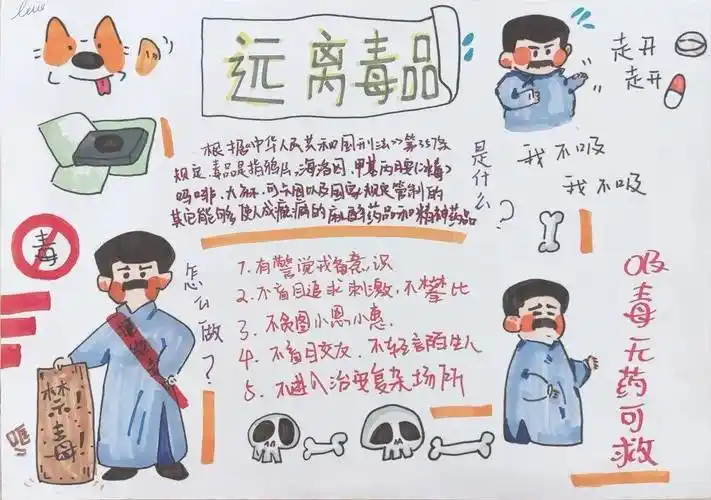 远离毒品
走开
走开
我不吸
我不吸
根据《中华人民共和国刑法》第357条
规定毒品是指鸦片、海洛因、甲基丙胺(冰毒)
吗啡、大麻、可卡因以及国家规定管制的
其它能够使人成瘾癖的麻醉药品和精神药品
是什么?
毒
怎么做?
1. 有警觉戒备意识
2. 不盲目追求刺激,不攀比
3. 不贪图小恩小惠.
4. 不盲目交友,不轻言陌生人
5. 不进入治安复杂场所
禁毒!
吸毒无药可救